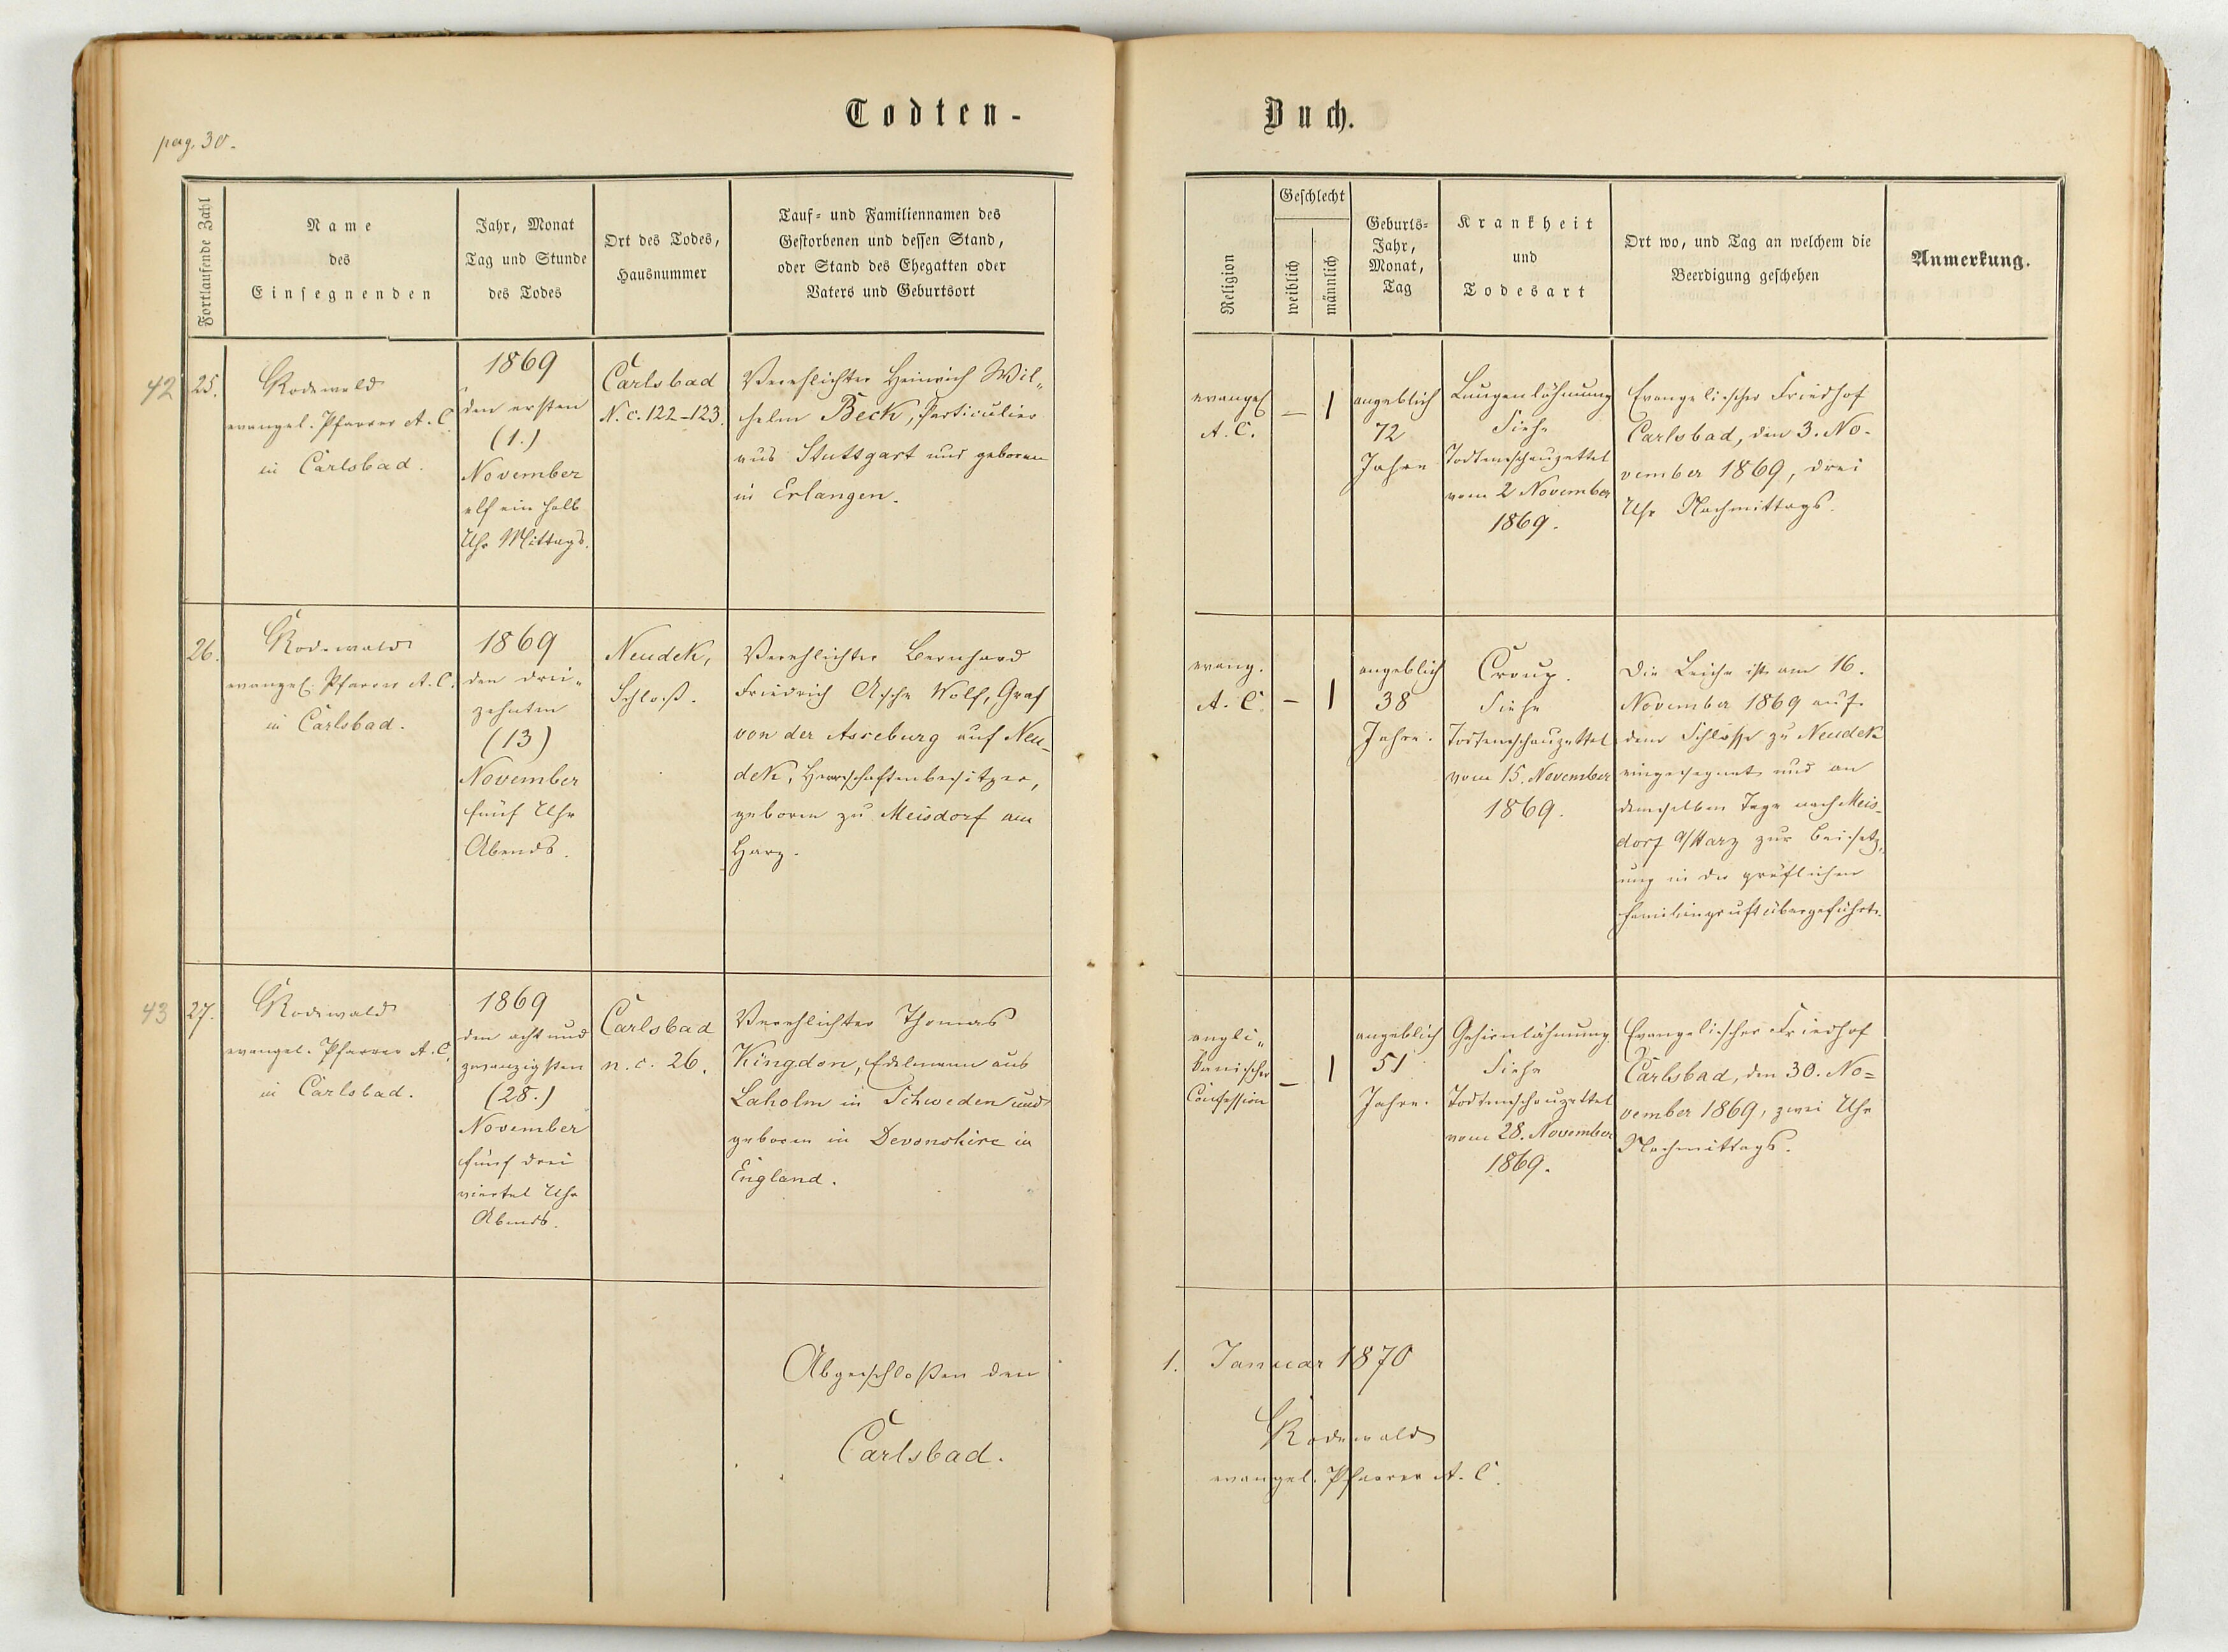 Todten-
Buch.
pag. 30.
Fortlaufende Zahl
Name
des
Einsegnenden
Jahr, Monat
Tag und Stunde
des Todes
Ort des Todes,
Hausnummer
Tauf- und Familiennamen des
Gestorbenen und dessen Stand,
oder Stand des Ehegatten oder
Vaters und Geburtsort
Religion
Geschlecht
weiblich
männlich
Geburts-
Jahr,
Monat,
Tag
Krankheit
und
Todesart
Ort wo, und Tag an welchem die
Beerdigung geschehen
Anmerkung.
42
25.
Rodewald
evangel. Pfarrer A. C.
in Carlsbad.
1869
den ersten
(1.)
November
elf ein halb
Uhr Mittags.
Carlsbad
N. c. 122-123.
Verehlichter Heinrich Wil-
helm Beck, Particulier
aus Stuttgart und geboren
in Erlangen.
evangel
A. C.
—
1
angeblich
72
Jahre
Lungenlähmung
Siehe
Todtenschauzettel
vom 2 November
1869.
Evangelischer Friedhof
Carlsbad, den 3. No-
vember 1869, drei
Uhr Nachmittags.
26.
Rodewald
evangel. Pfarrer A. C.
in Carlsbad.
1869
den drei-
zehnten
(13)
November
fünf Uhr
Abends.
Neudek,
Schloß.
Verehlichter Bernhard
Friedrich Asche Wolf, Graf
von der Asseburg auf Neu-
dek, Herrschaftenbesitzer,
geboren zu Meisdorf am
Harz.
evang.
A. C.
—
1
angeblich
38
Jahre.
Croup.
Siehe
Todtenschauzettel
vom 15. November
1869.
Die Leiche ist am 16.
November 1869 auf
dem Schlosse zu Neudek
eingesegnet und an
demselben Tage nach Meis-
dorf a/Harz zur Beisetz-
ung in der gräflichen
Familiengruft übergeführt.
43
27.
Rodewald
evangel. Pfarrer A. C.
in Carlsbad.
1869
den acht und
zwanzigsten
(28.)
November
fünf drei
viertel Uhr
Abends.
Carlsbad
n. c. 26.
Verehlichter Thomas
Kingdon, Edelmann aus
Laholm in Schweden und
geboren in Devonshire in
England.
angli-
kanischer
Confession
—
1
angeblich
51
Jahre.
Gehirnlähmung.
Siehe
Todtenschauzettel
vom 28. November
1869.
Evangelischer Friedhof
Carlsbad, den 30. No=
vember 1869, zwei Uhr
Nachmittags.
Abgeschloßen den
1. Januar 1870
Carlsbad.
Rodewald
evangel. Pfarrer A. C.